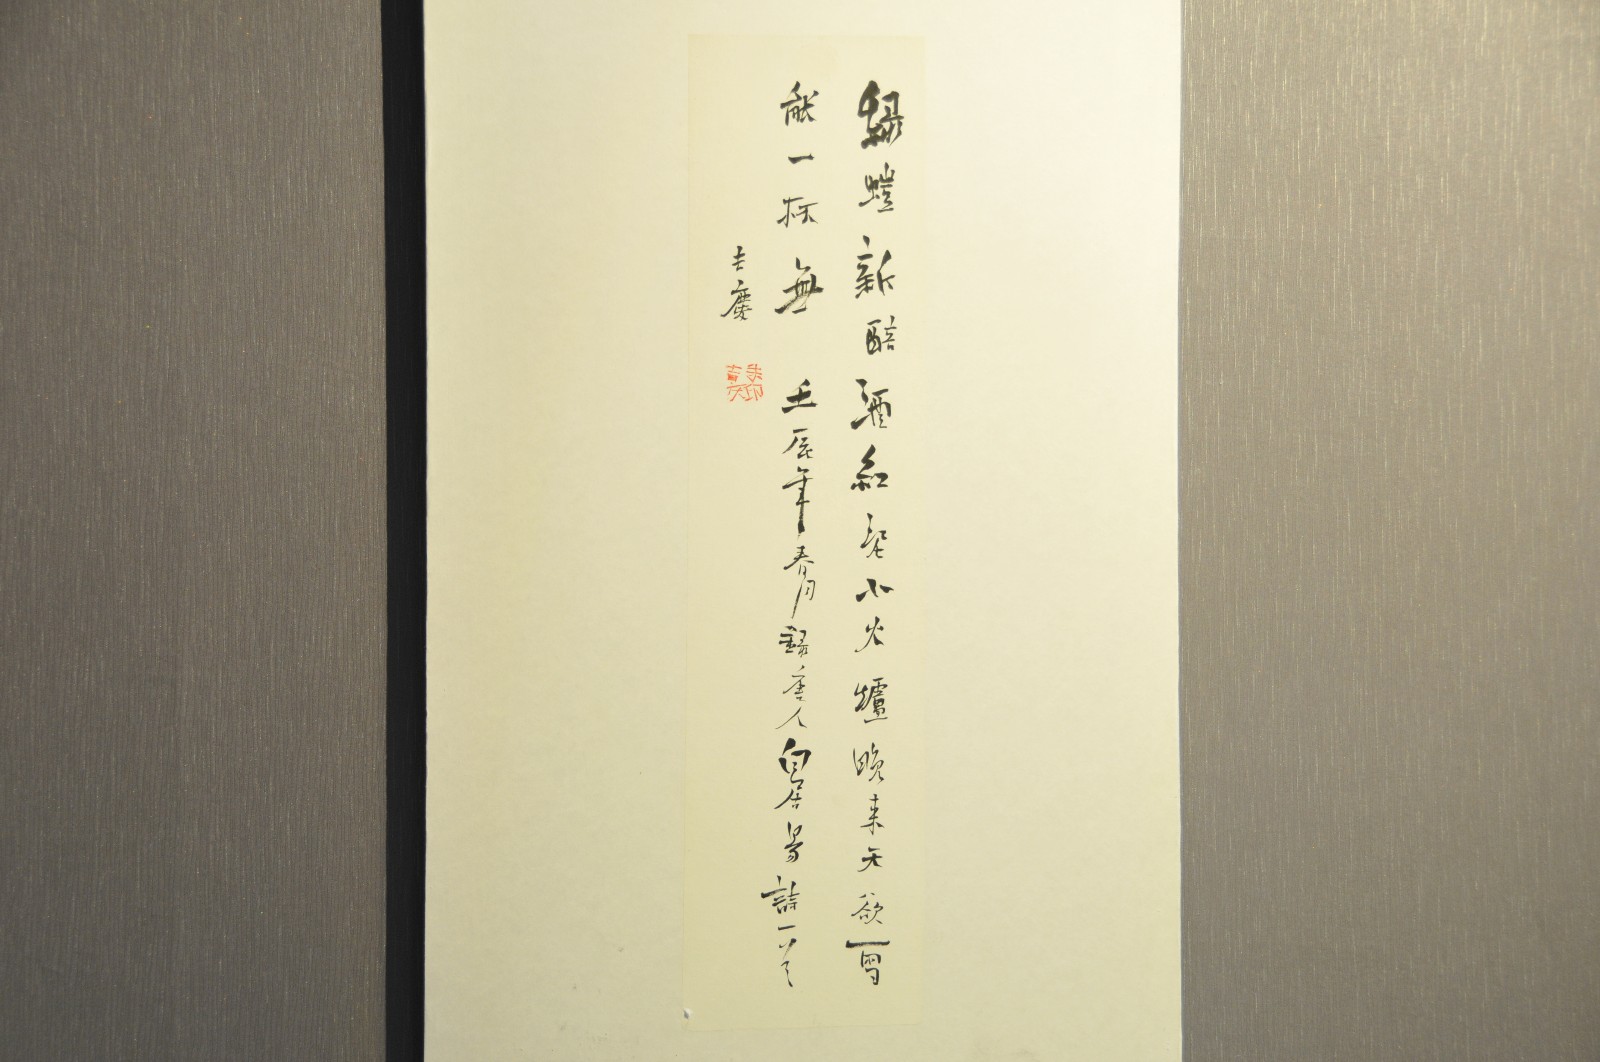 綠螘新醅酒紅泥小火爐晚来天欲雪
能一杯無 壬辰年春月錄唐人白居易詩一首
吉慶